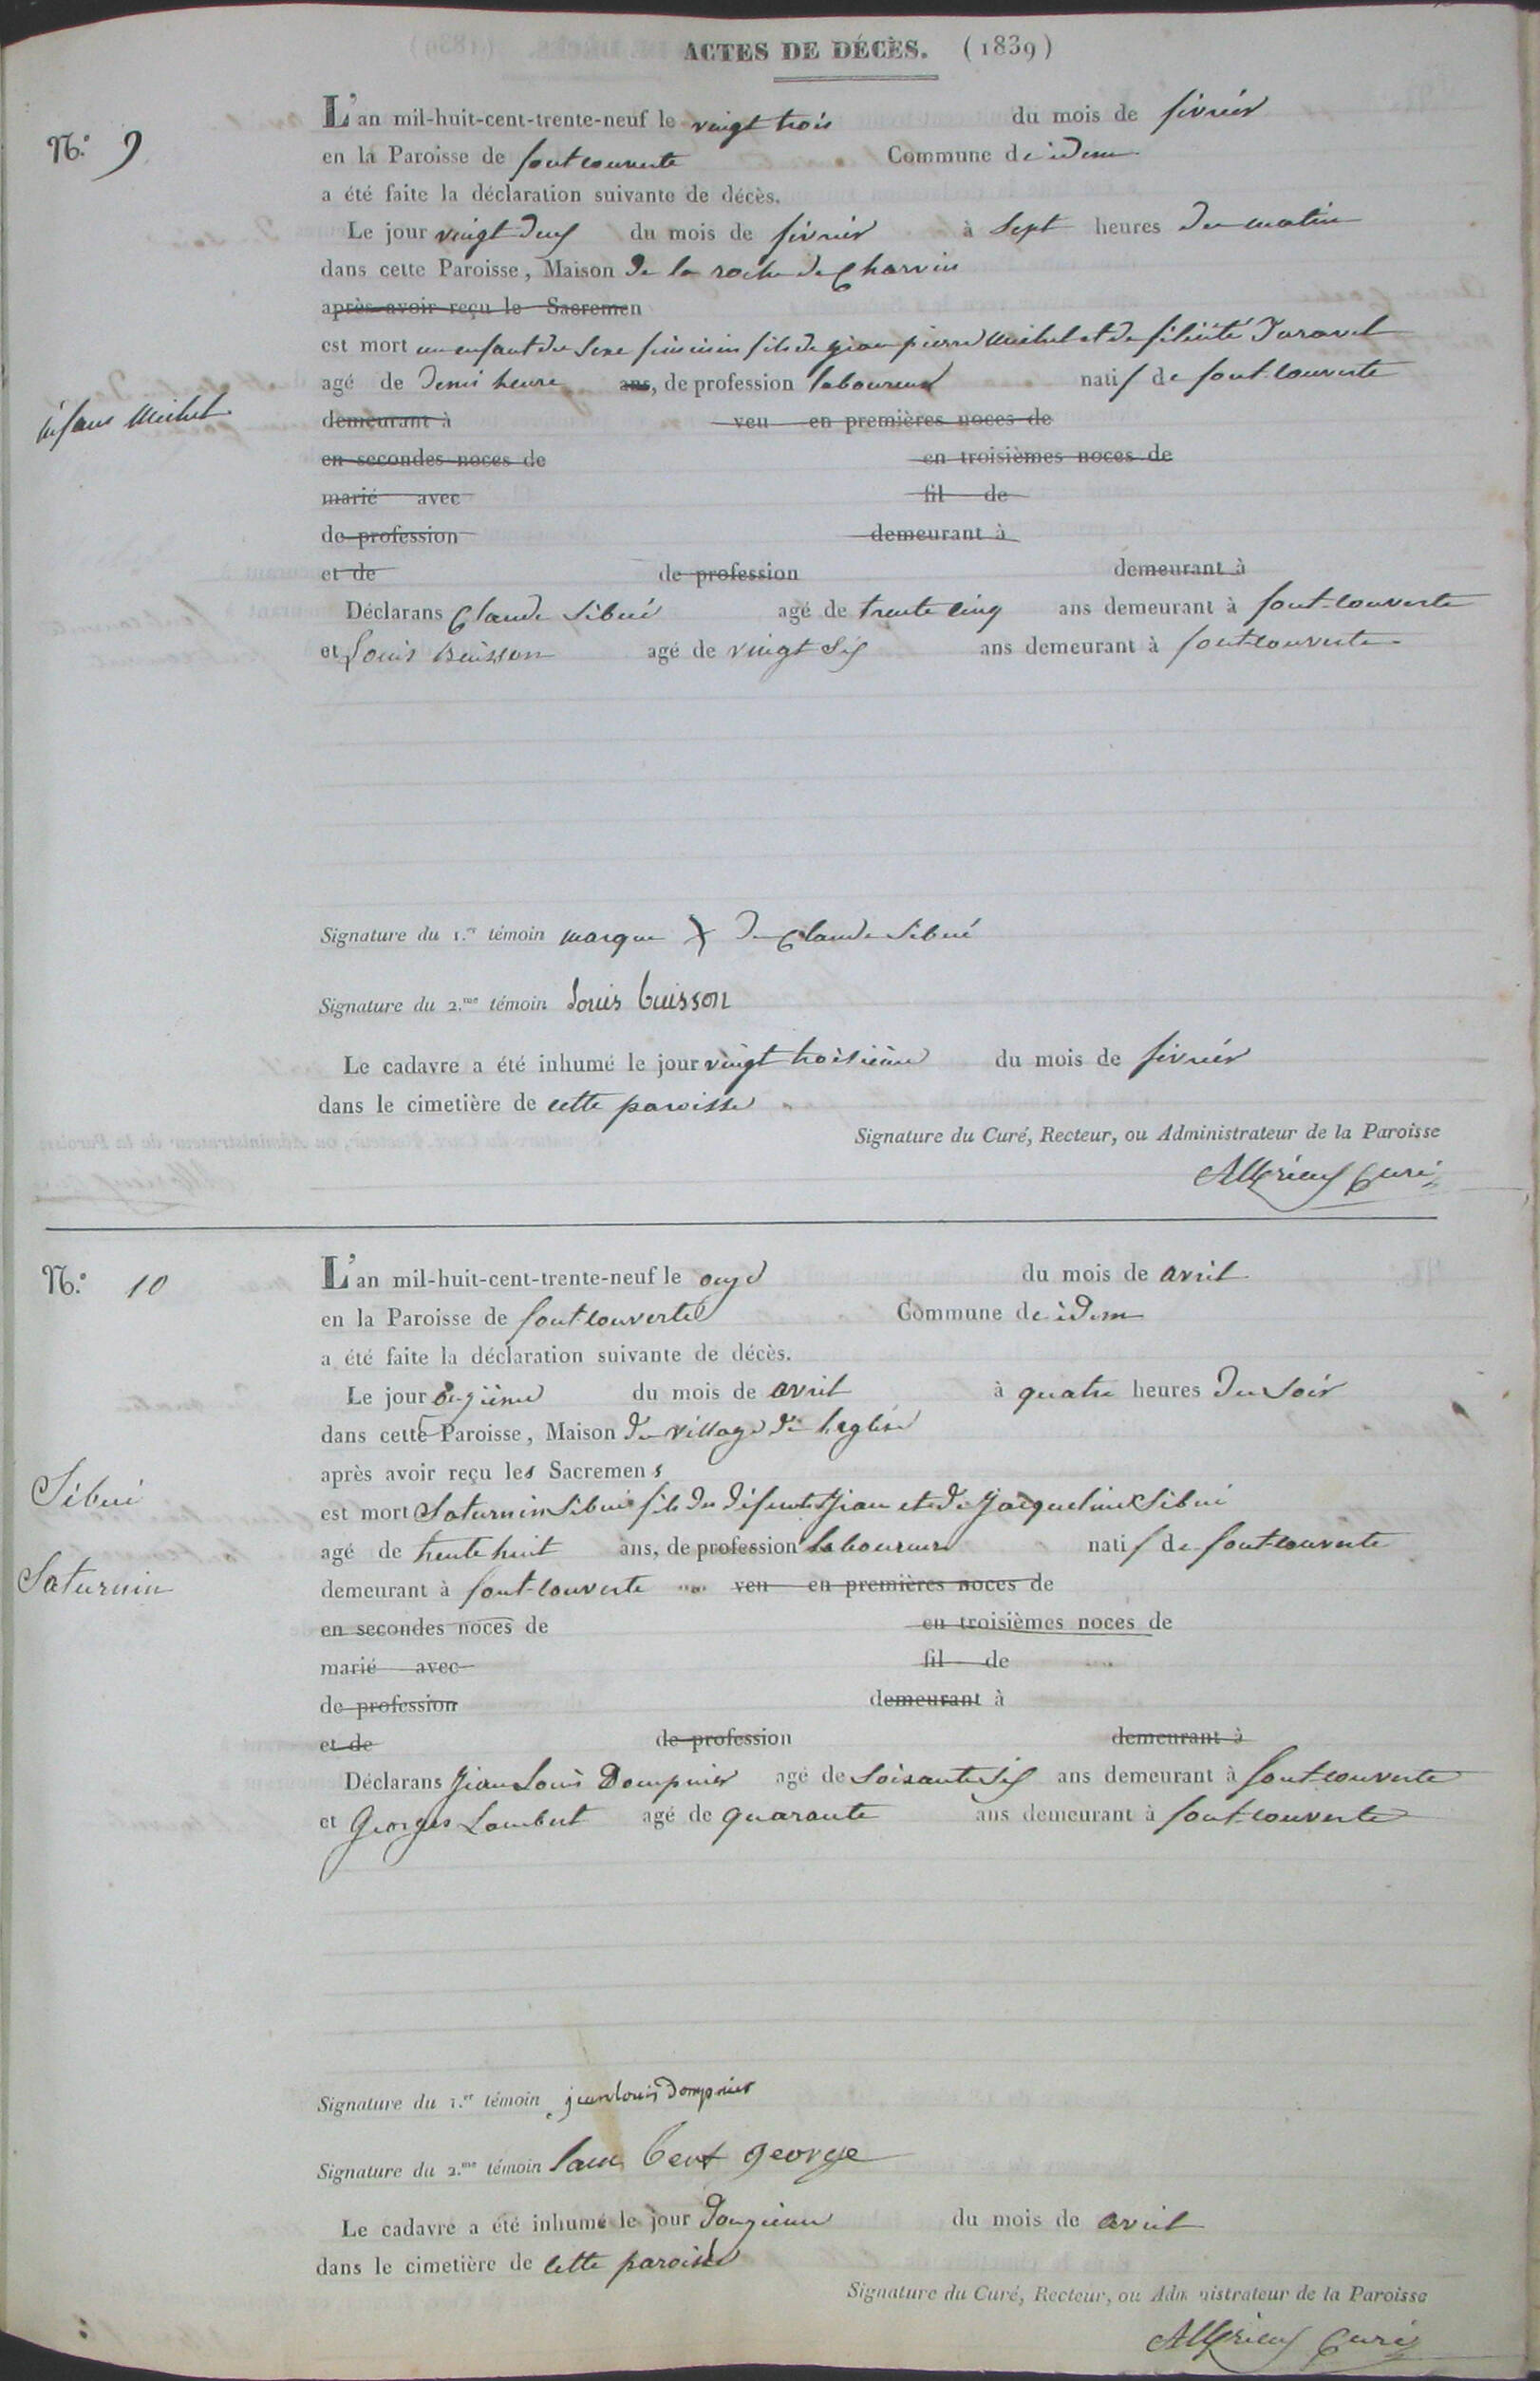 ACTES DE DÉCÈS. (1839)
N.º 9
L'an mil-huit-cent-trente-neuf le vingt trois du mois de février
en la Paroisse de fontcouverte Commune de idem
a été faite la déclaration suivante de décès.
Le jour vingt deux du mois de février à sept heures du matin
dans cette Paroisse, Maison de la roche de Charvin
après avoir reçu le Sacremen
est mort un enfant du sexe féminin fils de jean pierre Michel et de félicité Taravel
agé de demi heure ans, de profession laboureur natif de fontcouverte
enfant Michel
demeurant à veu en premières noces de
en secondes noces de en troisièmes noces de
marié avec fil de
de profession demeurant à
et de de profession demeurant à
Déclarans Claude Sibué agé de trente cinq ans demeurant à fontcouverte
et Louis Buisson agé de vingt six ans demeurant à fontcouverte
Signature du 1.er témoin marque X de Claude Sibué
Signature du 2.me témoin Louis buisson
Le cadavre a été inhumé le jour vingt troisième du mois de février
dans le cimetière de cette paroisse
Signature du Curé, Recteur, ou Administrateur de la Paroisse
Curé
N.º 10
L'an mil-huit-cent-trente-neuf le onze du mois de avril
en la Paroisse de fontcouverte Commune de idem
a été faite la déclaration suivante de décès.
Le jour onzième du mois de avril à quatre heures du soir
dans cette Paroisse, Maison du village de l'église
après avoir reçu les Sacremens
Sibué
est mort Saturnin Sibué fils du défunt Jean et de Jacqueline Sibué
agé de trente huit ans, de profession laboureur natif de fontcouverte
Saturnin
demeurant à fontcouverte veu en premières noces de
en secondes noces de en troisièmes noces de
marié avec fil de
de profession demeurant à
et de de profession demeurant à
Déclarans Jean Louis Dompnier agé de soixante six ans demeurant à fontcouverte
et Georges Lambert agé de quarante ans demeurant à fontcouverte
Signature du 1.er témoin jean louis Dompnier
Signature du 2.me témoin lam bert george
Le cadavre a été inhumé le jour douzième du mois de avril
dans le cimetière de cette paroisse
Signature du Curé, Recteur, ou Administrateur de la Paroisse
Curé